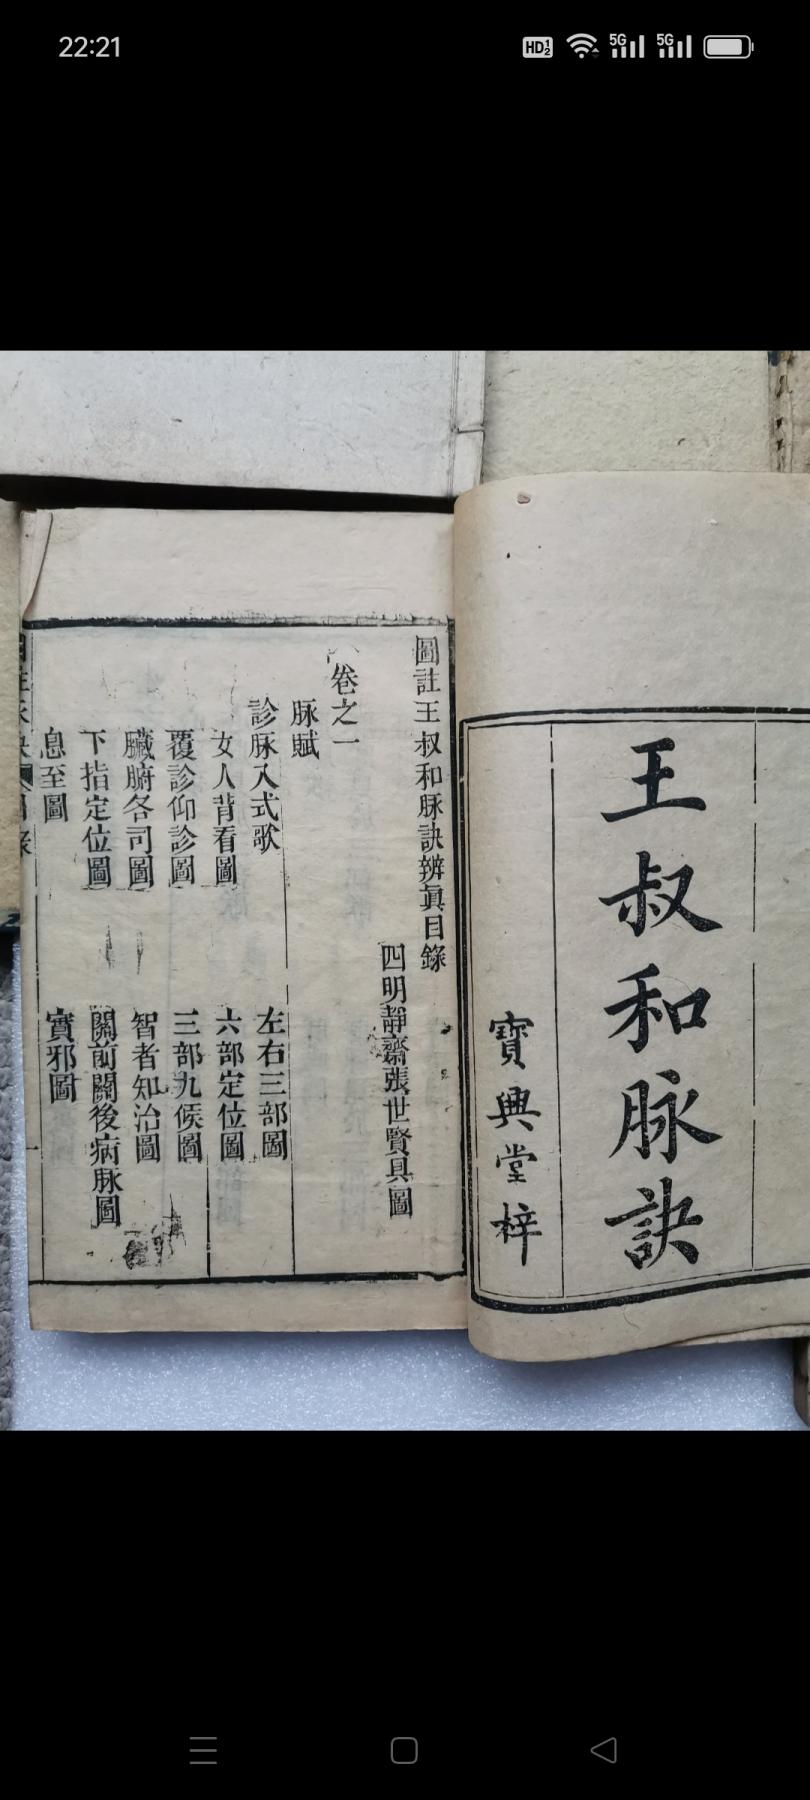 22:21
HD 1 2 5G 5G
王叔和脉訣
寶興堂梓
圖註王叔和脉訣辨眞目錄
四明靜齋張世賢具圖
卷之一
脉賦
診脉入式歌
左右三部圖
女人背看圖
六部定位圖
覆診仰診圖
三部九候圖
臟腑各司圖
智者知治圖
下指定位圖
關前關後病脉圖
息至圖
實邪圖